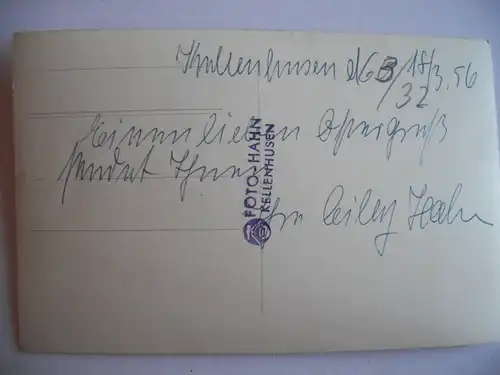 Kellenhusen d 18/3.56
63/32
Einen lieben Ostergruß
sendet Ihnen
Ihr Hahn
FOTO-HAHN
KELLENHUSEN